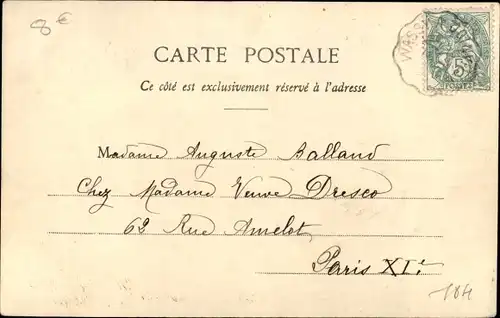 8€
CARTE POSTALE
Ce côté est exclusivement réservé à l'adresse
Madame Auguste Balland
Chez Madame Veuve Dresco
62 Rue Amelot
Paris XIe
5
POSTES
184